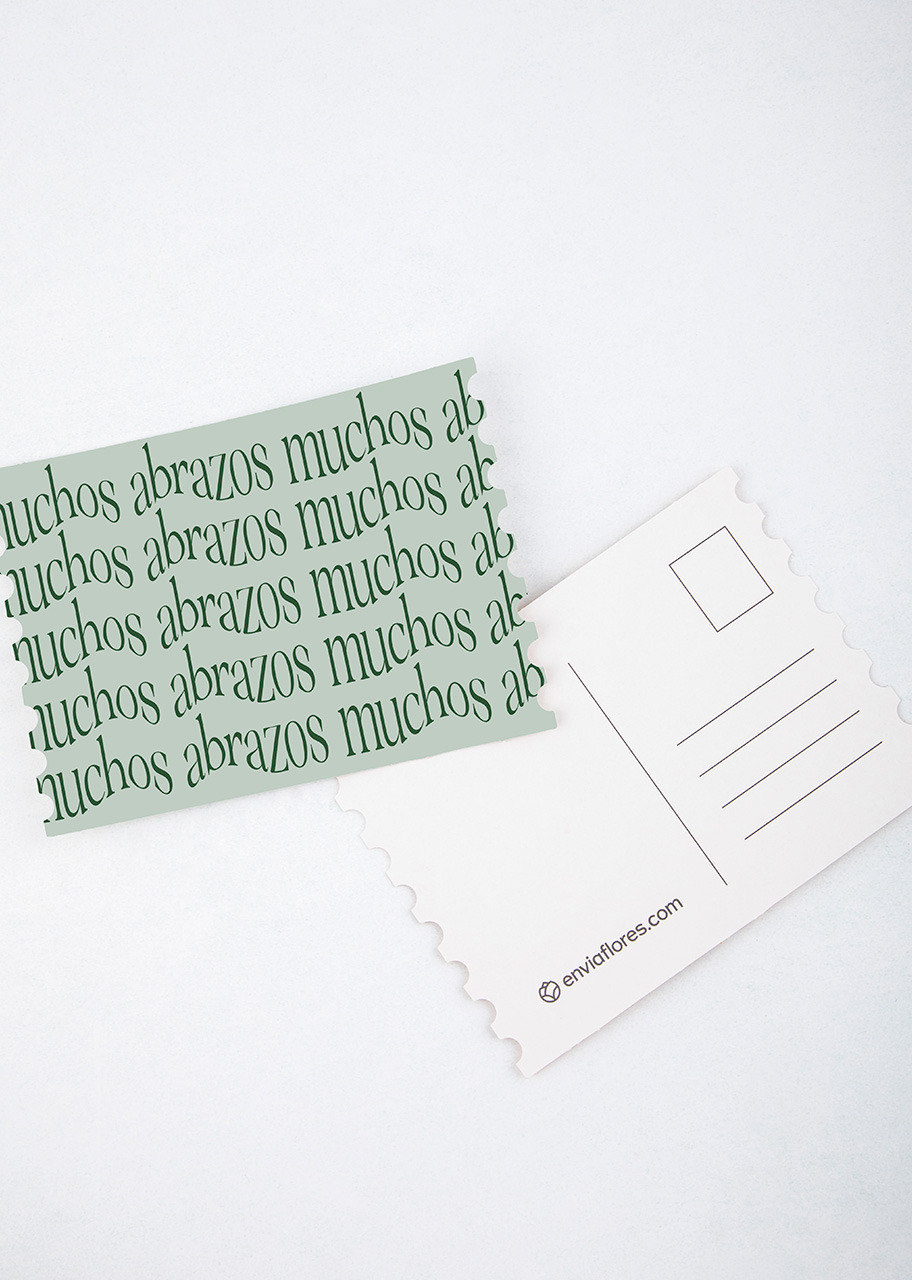 muchos abrazos muchos ab
muchos abrazos muchos ab
muchos abrazos muchos ab
muchos abrazos muchos ab
muchos abrazos muchos ab
enviaflores.com